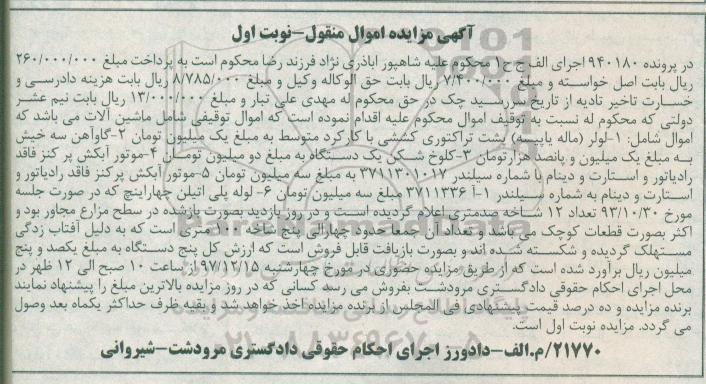 آگهی مزایده اموال منقول-نوبت اول
در پرونده ۹۴۰۱۸۰ اجرای الف ج ح۱ محکوم علیه شاهپور اباذری نژاد فرزند رضا محکوم است به پرداخت مبلغ ۲۶۰/۰۰۰/۰۰۰
ریال بابت اصل خواسته و مبلغ ۷/۴۰۰/۰۰۰ ریال بابت حق الوکاله وکیل و مبلغ ۸/۷۸۵/۰۰۰ ریال بابت هزینه دادرسی و
خسارت تاخیر تادیه از تاریخ سررسید چک در حق محکوم له مهدی علی تبار و مبلغ ۱۳/۰۰۰/۰۰۰ ریال بابت نیم عشر
دولتی که محکوم له نسبت به توقیف اموال محکوم علیه اقدام نموده است که اموال توقیفی شامل ماشین آلات می باشد که
اموال شامل: ۱-لولر (ماله یاپیسه) پشت تراکتوری کششی با کارکرد متوسط به مبلغ یک میلیون تومان ۲-گاوآهن سه خیش
به مبلغ یک میلیون و پانصد هزارتومان ۳-کلوخ شکن یک دستگاه به مبلغ دو میلیون تومان ۴-موتور آبکش پر کنز فاقد
رادیاتور و استارت و دینام با شماره سیلندر ۳۷۱۱۳۰۱۰۱۷ به مبلغ سه میلیون تومان ۵-موتور آبکش پرکنز فاقد رادیاتور و
استارت و دینام به شماره سیلندر ۱-آ ۳۷۱۱۳۳۶ مبلغ سه میلیون تومان ۶- لوله پلی اتیلن چهاراینچ که در صورت جلسه
مورخ ۹۳/۱۰/۳۰ تعداد ۱۲ شاخه صدمتری اعلام گردیده است و در روز بازدید بصورت بازشده در سطح مزارع مجاور بود و
اکثر بصورت قطعات کوچک می باشد و تعداد آن جمعا حدود چهارالی پنج شاخه ۱۰۰ متری است که به دلیل آفتاب زدگی
مستهلک گردیده و شکسته شده اند و بصورت بازیافت قابل فروش است که ارزش کل پنج دستگاه به مبلغ یکصد و پنج
میلیون ریال برآورد شده است که از طریق مزایده حضوری در مورخ چهارشنبه ۹۷/۱۲/۱۵ از ساعت ۱۰ صبح الی ۱۲ ظهر در
محل اجرای احکام حقوقی دادگستری مرودشت بفروش می رسد کسانی که در روز مزایده بالاترین مبلغ را پیشنهاد نمایند
برنده مزایده و ده درصد قیمت پیشنهادی فی المجلس از برنده مزایده اخذ خواهد شد و بقیه ظرف حداکثر یکماه بعد وصول
می گردد. مزایده نوبت اول است.
۲۱۷۷۰/م.الف-دادورز اجرای احکام حقوقی دادگستری مرودشت-شیروانی